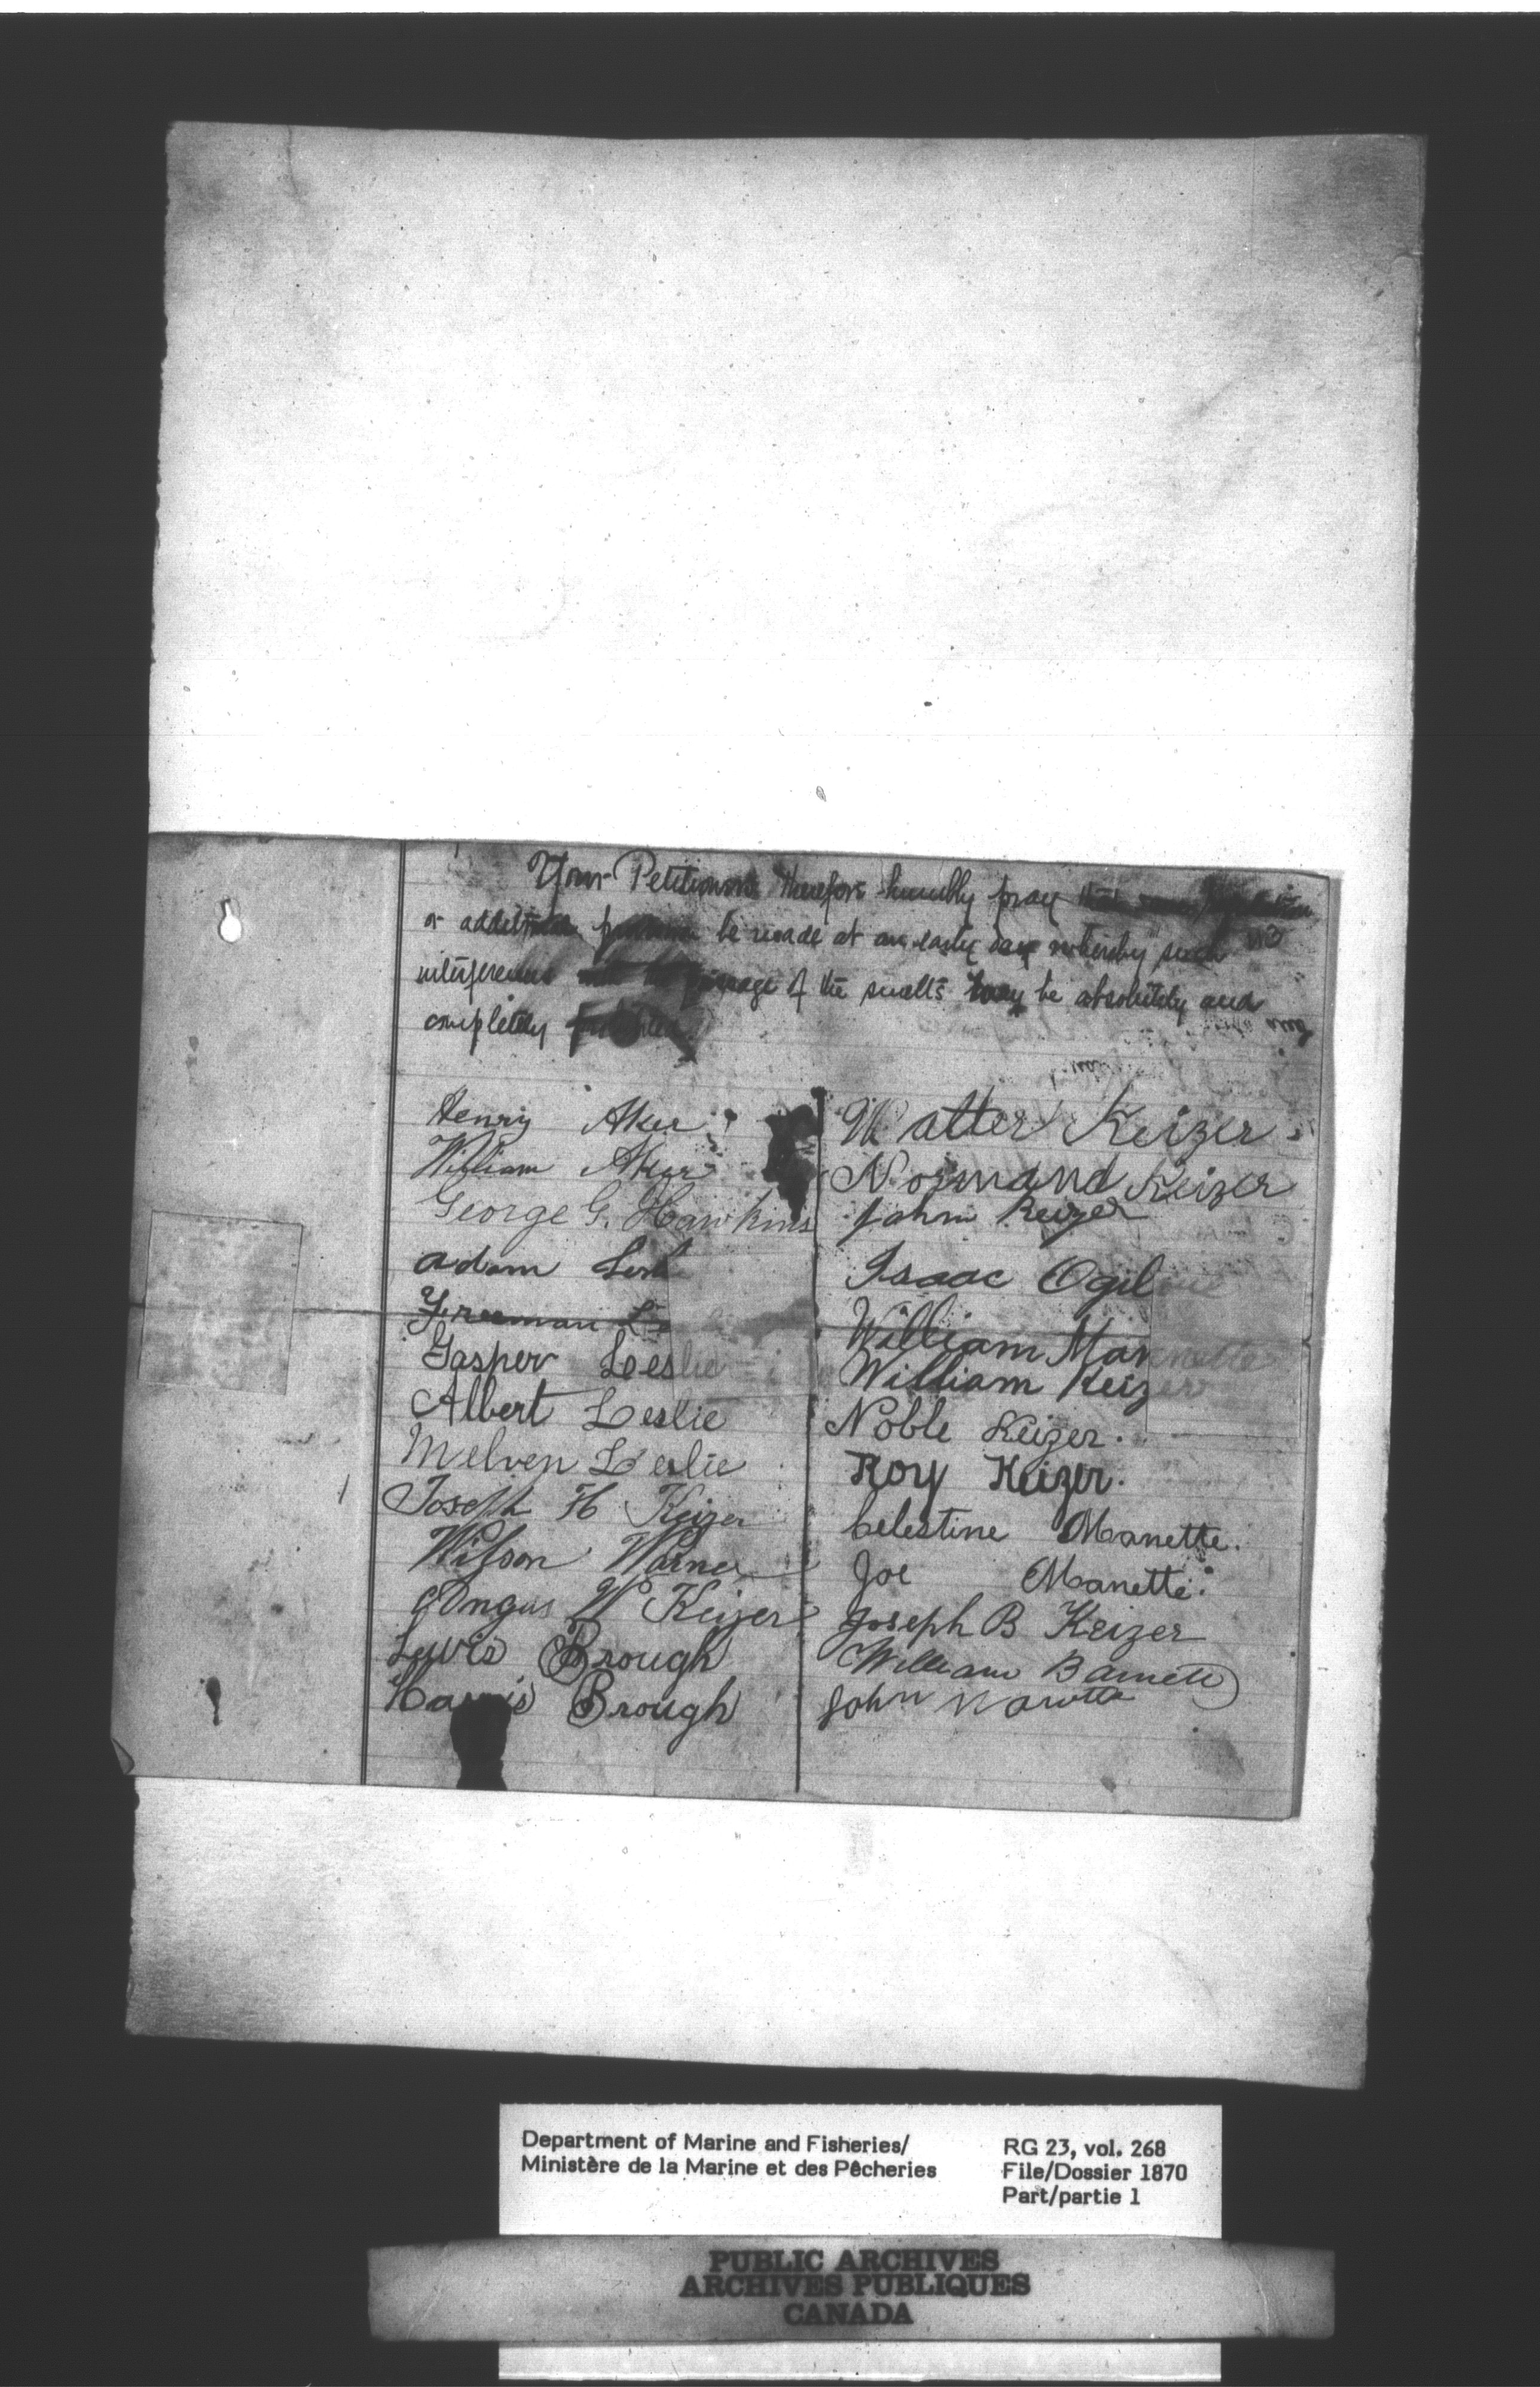 Your Petitioners therefore humbly pray that some
or additional be made at an early day whereby such
interference with the passage of the smelts may be absolutely and
completely
Henry Aker
William Aker
George G. Hawkins
Adam Lesl
Freeman L
Gasper Leslie
Albert Leslie
Melven Leslie
Joseph H Keizer
Wilson Warner
Angus W Keizer
Lewis Brough
Harris Brough
Walter Keizer
Normand Keizer
John Keizer
Isaac Ogilvie
William Mannette
William Keizer
Noble Keizer.
Roy Keizer.
Celestine Manette.
Joe Manette.
Joseph B Keizer
William Barnett
John
Department of Marine and Fisheries/
Ministère de la Marine et des Pêcheries
RG 23, vol. 268
File/Dossier 1870
Part/partie 1
PUBLIC ARCHIVES
ARCHIVES PUBLIQUES
CANADA